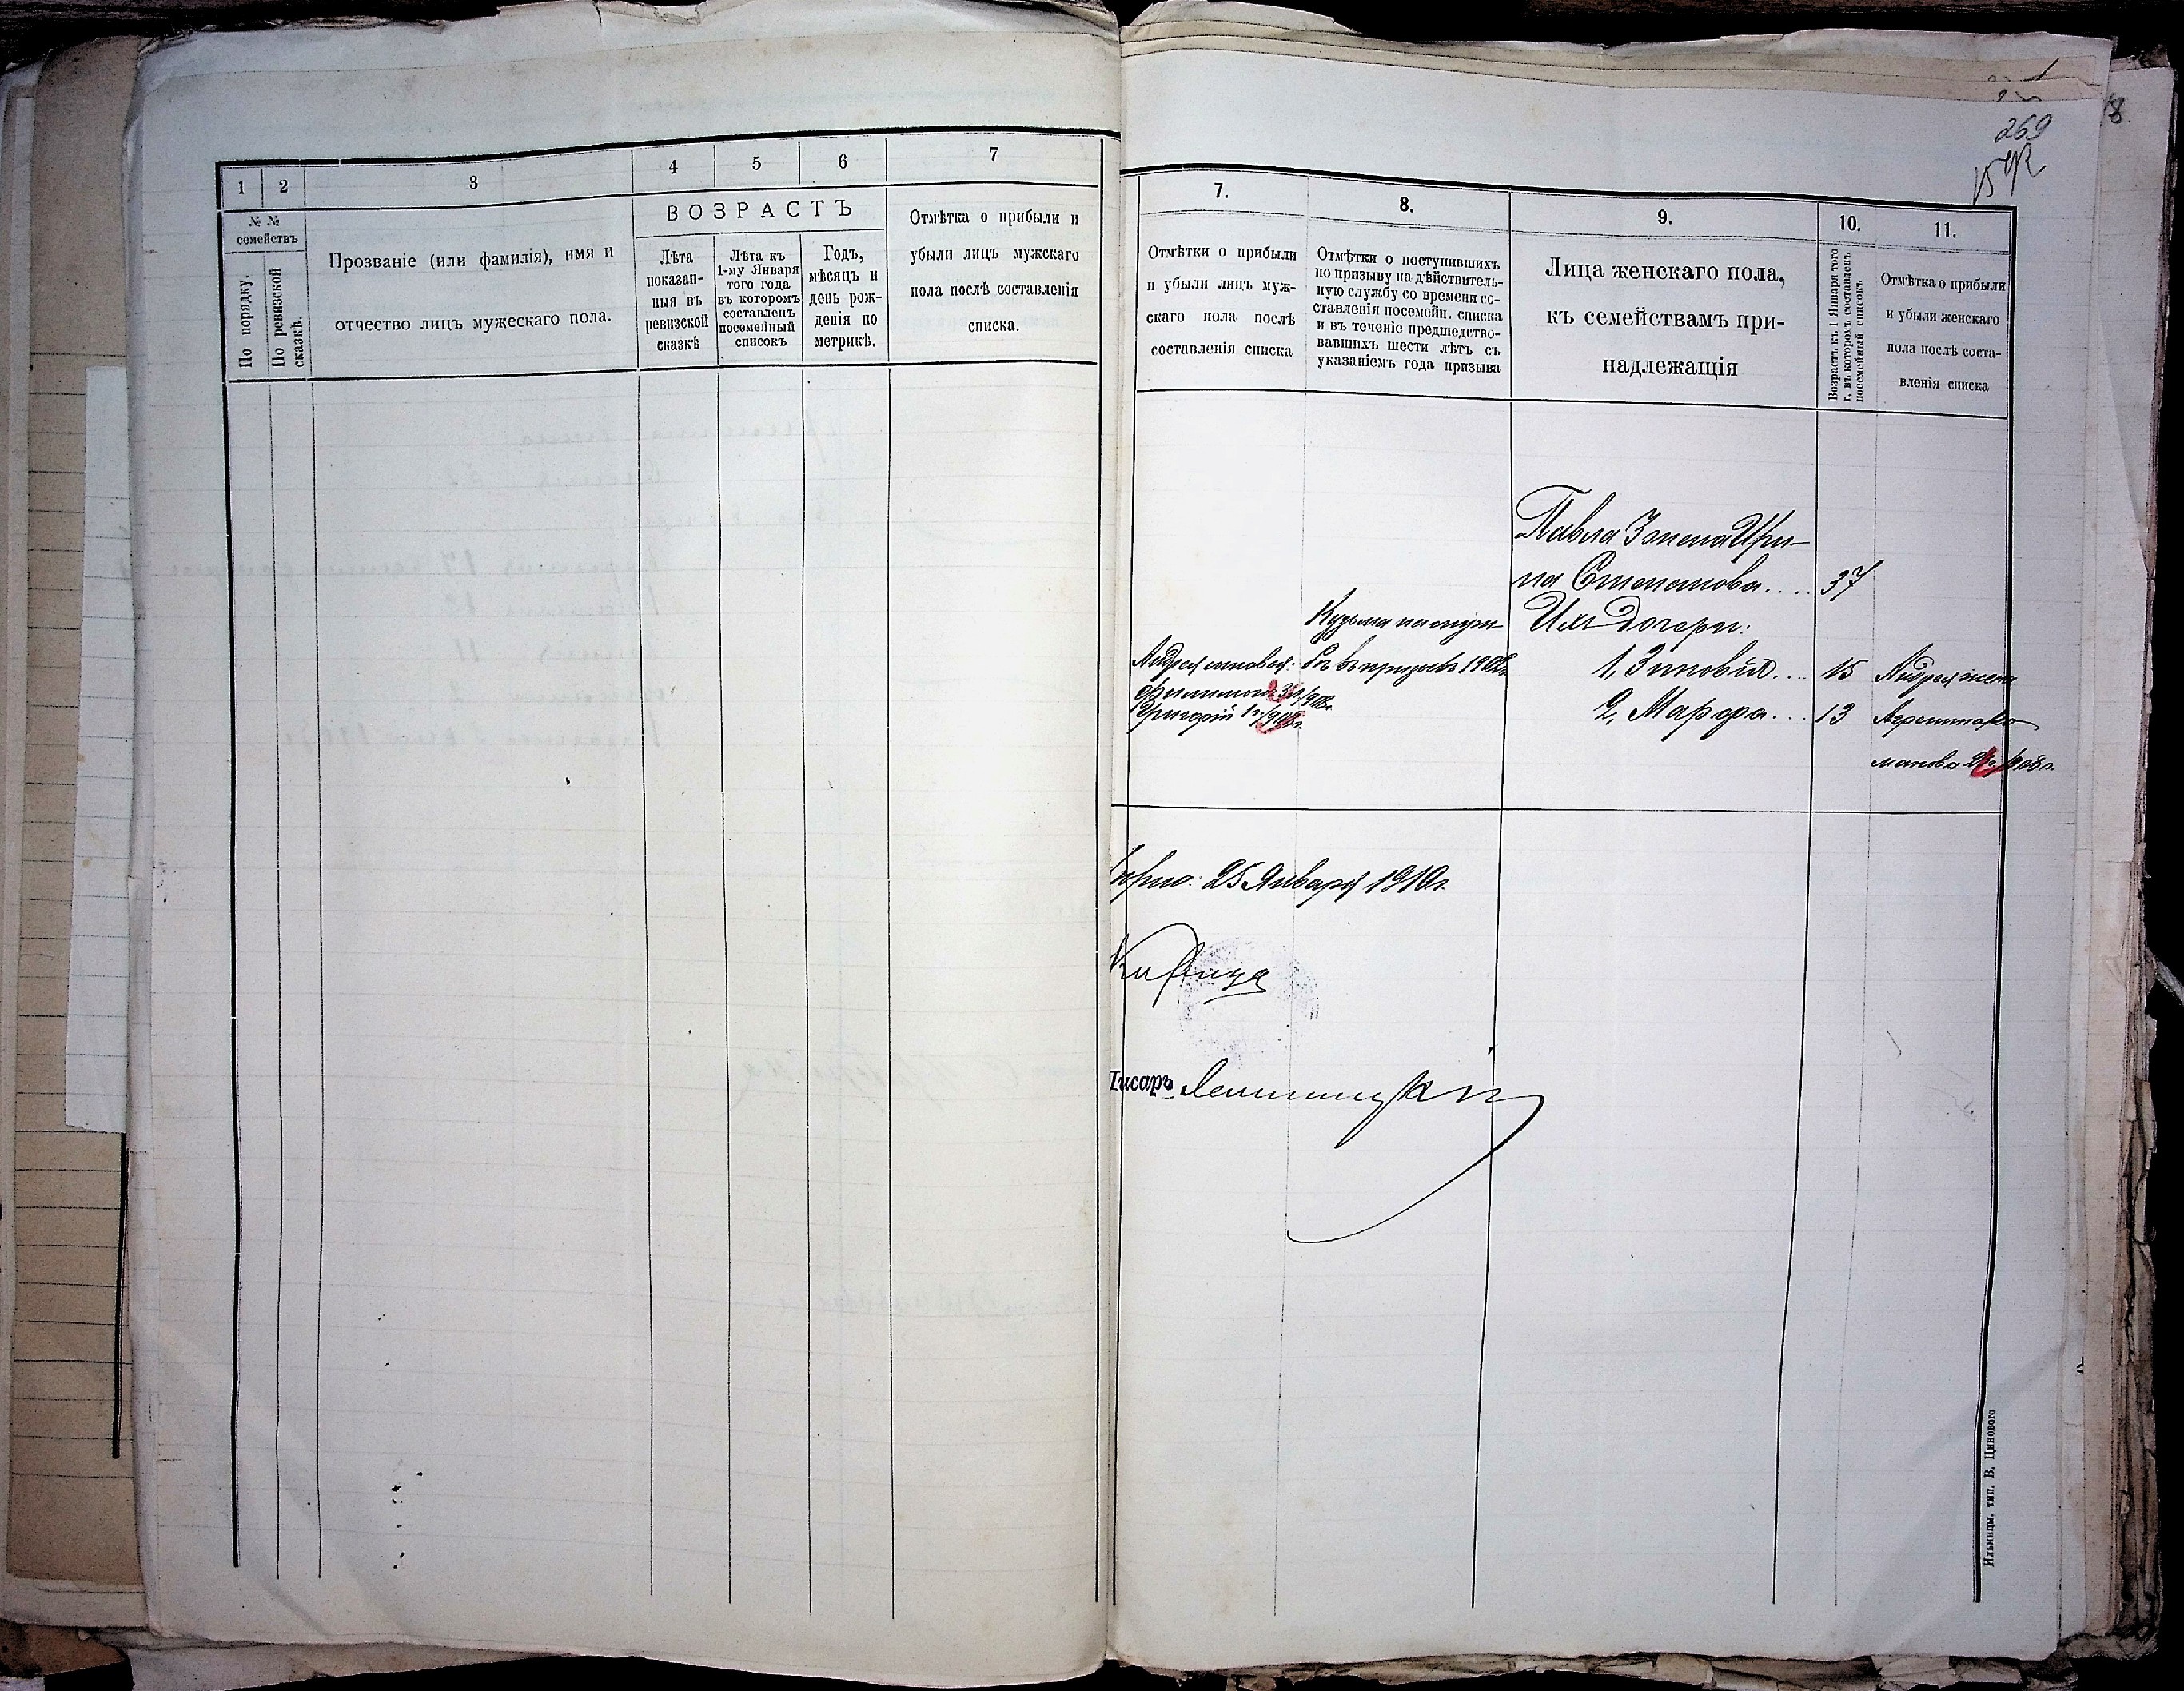 1
2
3
4
5
6
7
№ №
семействъ
По порядку.
По ревизской
сказкѣ.
Прозваніе (или фамилія), имя и
отчество лицъ мужескаго пола.
ВОЗРАСТЪ
Лѣта
показан-
ныя въ
ревизской
сказкѣ
Лѣта къ
1-му Января
того года
въ которомъ
составленъ
посемейный
списокъ
Годъ,
мѣсяцъ и
день рож-
денія по
метрикѣ.
Отмѣтка о прибыли и
убыли лицъ мужскаго
пола послѣ составленія
списка.
269
7.
8.
9.
10.
11.
Отмѣтки о прибыли
и убыли лицъ муж-
скаго пола послѣ
составленія списка
Отмѣтки о поступившихъ
по призыву на дѣйствитель-
ную службу со времени со-
ставленія посемейн. списка
и въ теченіе предшедство-
вавшихъ шести лѣтъ съ
указаніемъ года призыва
Лица женскаго пола,
къ семействамъ при-
надлежащія
Возрастъ къ 1 Января того
г. въ которомъ составленъ
посемейный списокъ
Отмѣтка о прибыли
и убыли женскаго
пола послѣ соста-
вленія списка
Павла Жена Ири-
на Степанова.... 37
Ихъ Дочери:
1, Зиновія... 15
2, Марфа... 13
Кузьма на служ
бѣ въ призывъ 190
Андрея сыновья:
Филимонъ
Григорій 1 г.
Андрея жена
манова 1908 г.
вѣрно: 25 Января 1910 г.
Писарь
Ильинцы, тип. В. Цинового